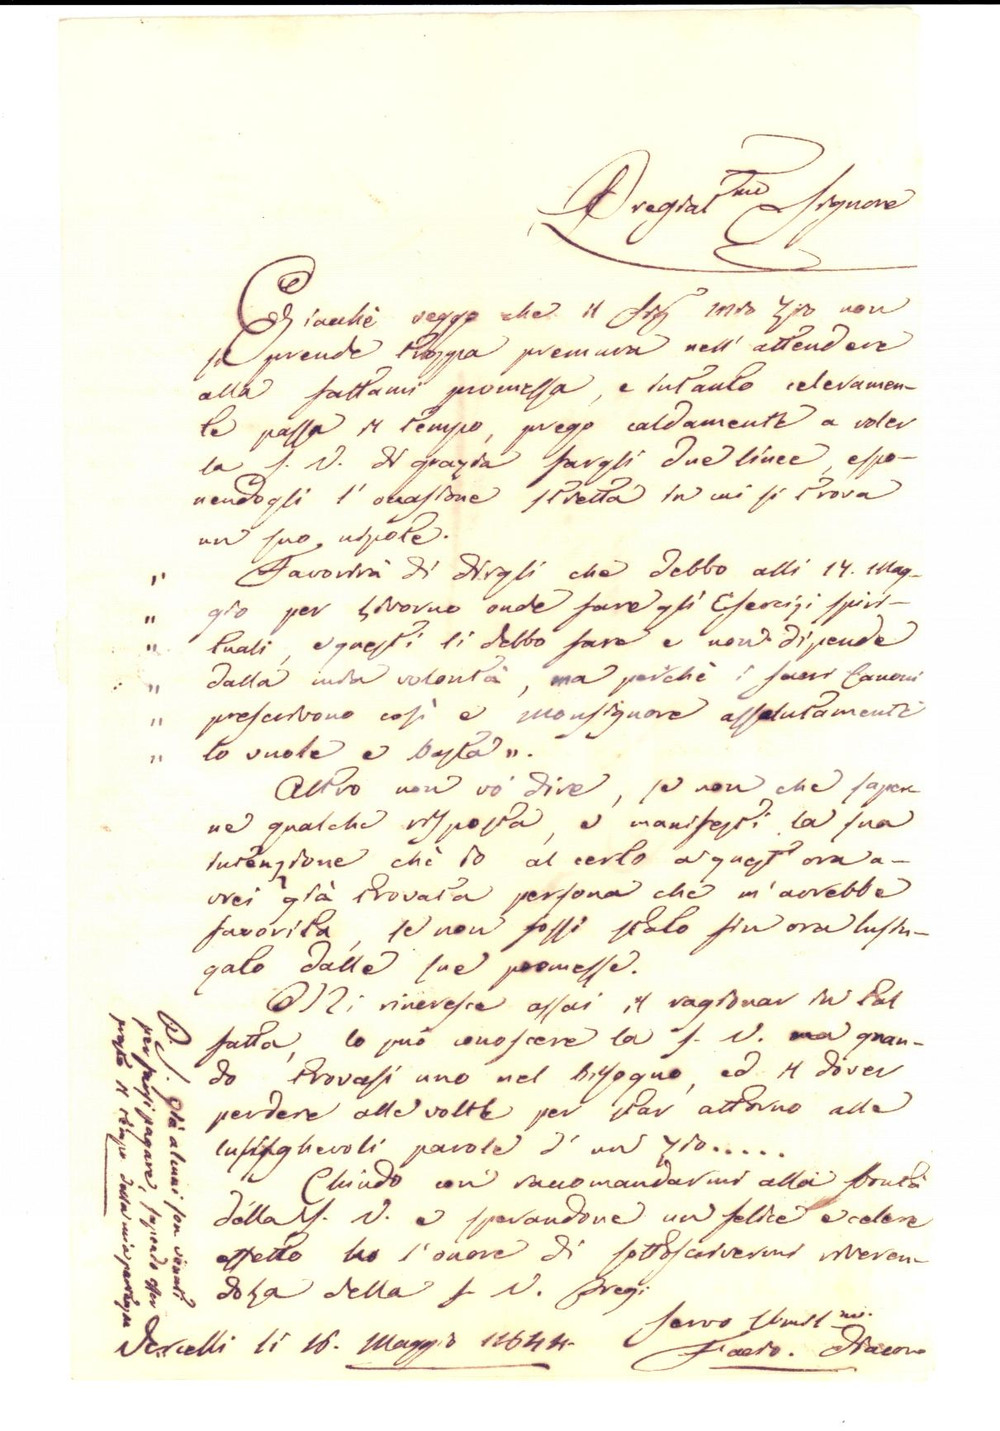 Pregiat.mo Signore
Giacchè veggo che il Sig.r mio Zio non
si prende troppa premura nell' attendere
alla fattami promessa, e intanto celeramen-
te passa il tempo, prego caldamente a voler
la S. V. di grazia fargli due linee, espo-
nendogli l' occasione stretta in cui si trova
un suo nipote.
" Favorirà di dirgli che debbo alli 14. Mag-
" gio per Livorno onde fare gli Esercizi spiri-
" tuali, e questi li debbo fare e non dipende
" dalla mia volontà, ma perchè i sacri Canoni
" prescrivono così e Monsignore assolutamente
" lo vuole e basta ".
Altro non vo' dire, se non che saper-
ne qualche risposta, e manifesti la sua
intenzione chè io al certo a quest' ora a-
vrei già trovata persona che m' avrebbe
favorita, se non fossi stato fin ora lusin-
gato dalle sue promesse.
Mi rincresce assai il ragionar in tal
fatta, lo può conoscere la S. V. ma quan-
do trovasi uno nel bisogno, ed il dover
perdere alle volte per star attorno alle
lusinghevoli parole d' un Zio.....
Chiudo con raccomandarmi alla bontà
della S. V. e sperandone un felice e celere
effetto ho l' onore di sottoscrivermi riveren-
della S. V. Preg.
Servo Umil.mo
Diacono
Vercelli li 16. Maggio 1844.
P. S. Già alcuni son venuti
per farsi pagare, sapendo esser
presto il tempo della mia partenza